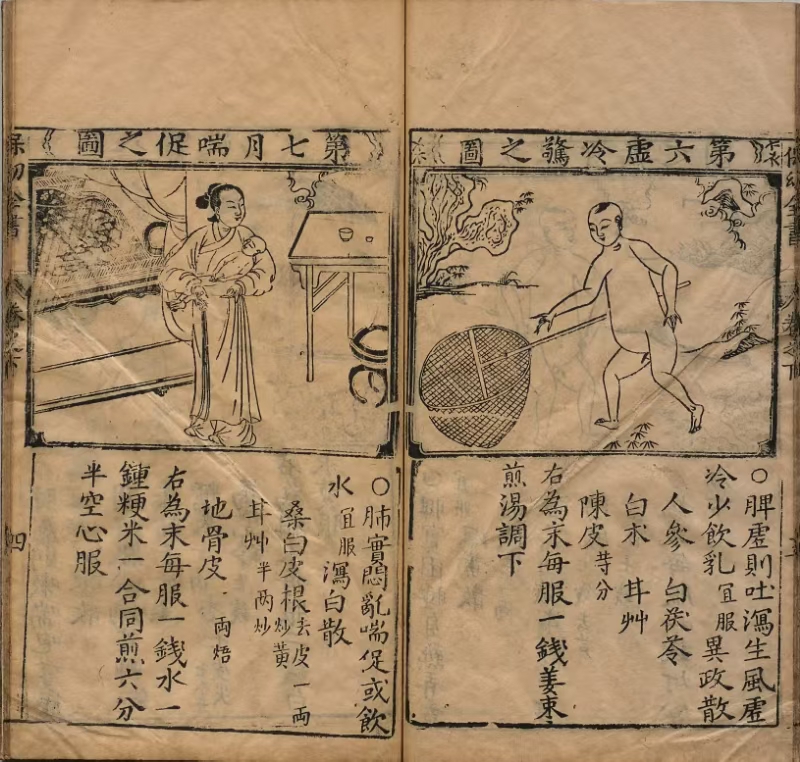 第六虛冷驚之圖
○脾虛則吐瀉生風虛
冷少飲乳宜服異政散
人參 白茯苓
白朮 甘艸
陳皮 等分
右為末每服一錢姜棗
煎湯調下
第七月喘促之圖
○肺實悶亂喘促或飲
水宜服瀉白散
桑白皮根去皮一両炒黃
甘艸半両炒
地骨皮 両焙
右為末每服一錢水一
鍾粳米一合同煎六分
半空心服
保幼全書
卷之下
四